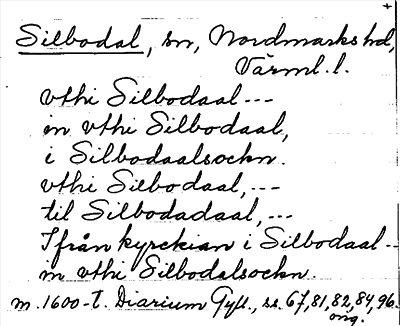 +
Silbodal, sn, Nordmarks hd,
Värml. l.
vthi Silbodaal ---
in vthi Silbodaal,
i Silbodaalsockn.
vthi Silbodaal, ---
til Silbodadaal, ---
Ifrån kyrckian i Silbodaal --
m vthi Silbodalsockn.
m. 1600-t. Diarium Gyll., ss. 67, 81, 82, 84, 96.
orig.